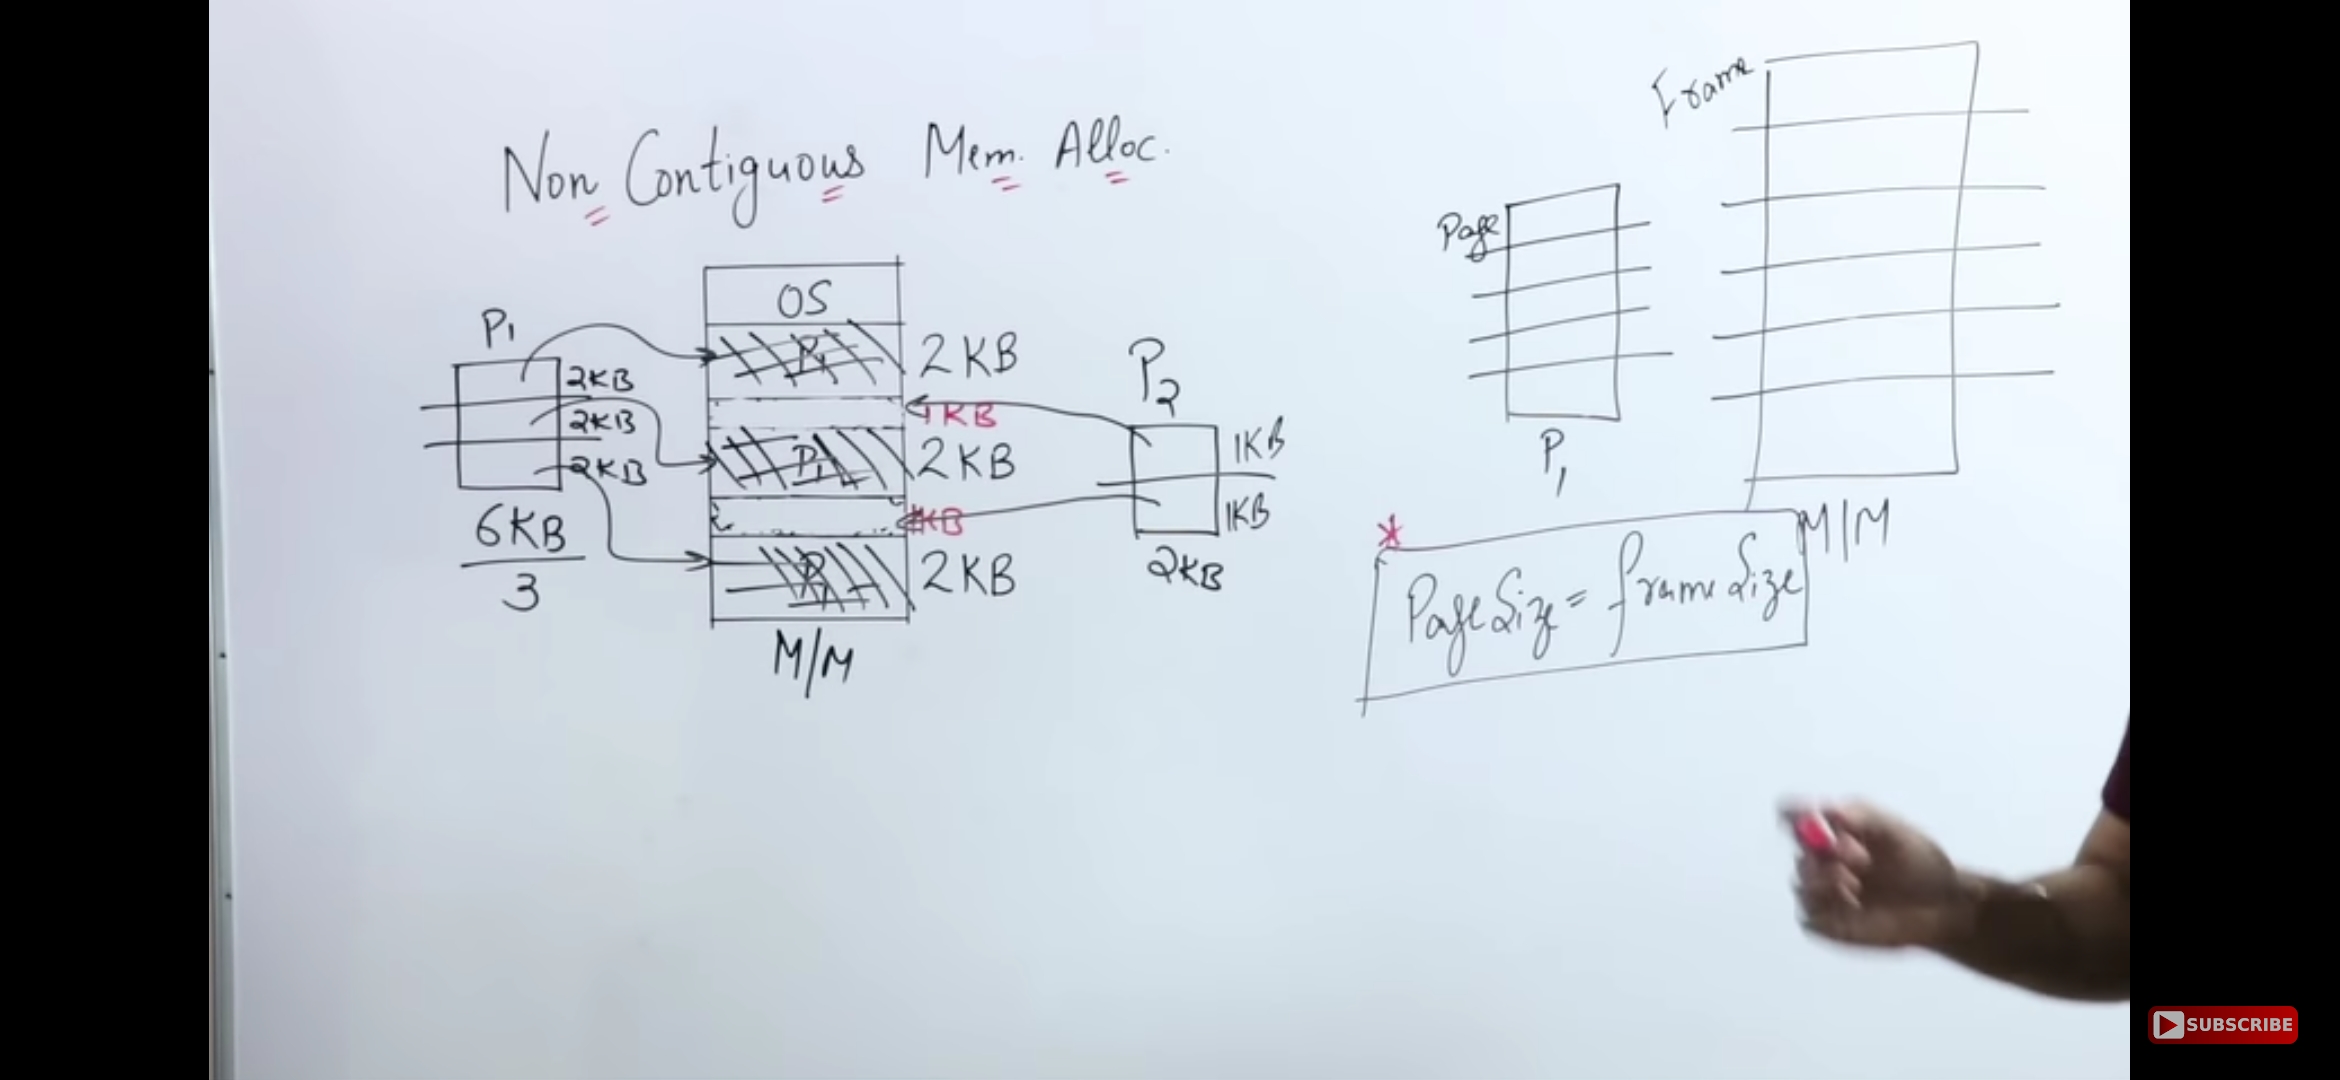 Non Contiguous Mem. Alloc.
P1
2KB
2KB
2KB
6KB
3
OS
P1
2KB
1KB
P1
2KB
1KB
P1
2KB
M/M
P2
1KB
1KB
2KB
Page
P1
Frame
M/M
*
Page Size = frame Size
SUBSCRIBE